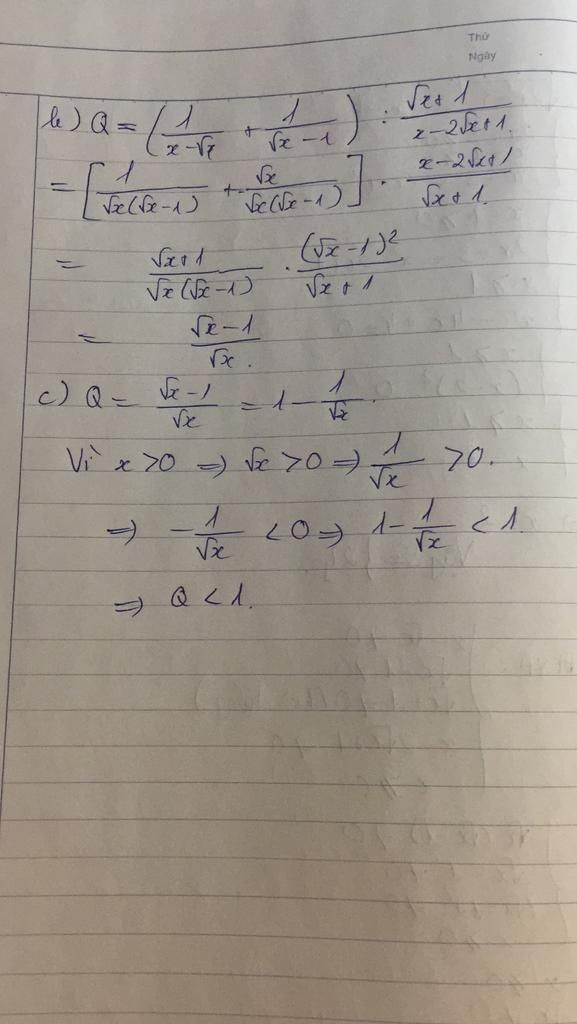 Thứ
Ngày
b) Q = (1/(x-√x) + 1/(√x-1)) : (√x+1)/(x-2√x+1)
= [1/(√x(√x-1)) + √x/(√x(√x-1))] . (x-2√x+1)/(√x+1)
= (√x+1)/(√x(√x-1)) . (√x-1)²/(√x+1)
= (√x-1)/√x.
c) Q = (√x-1)/√x = 1 - 1/√x.
Vì x>0 ⇒ √x >0 ⇒ 1/√x >0.
⇒ -1/√x <0 ⇒ 1-1/√x < 1.
⇒ Q < 1.